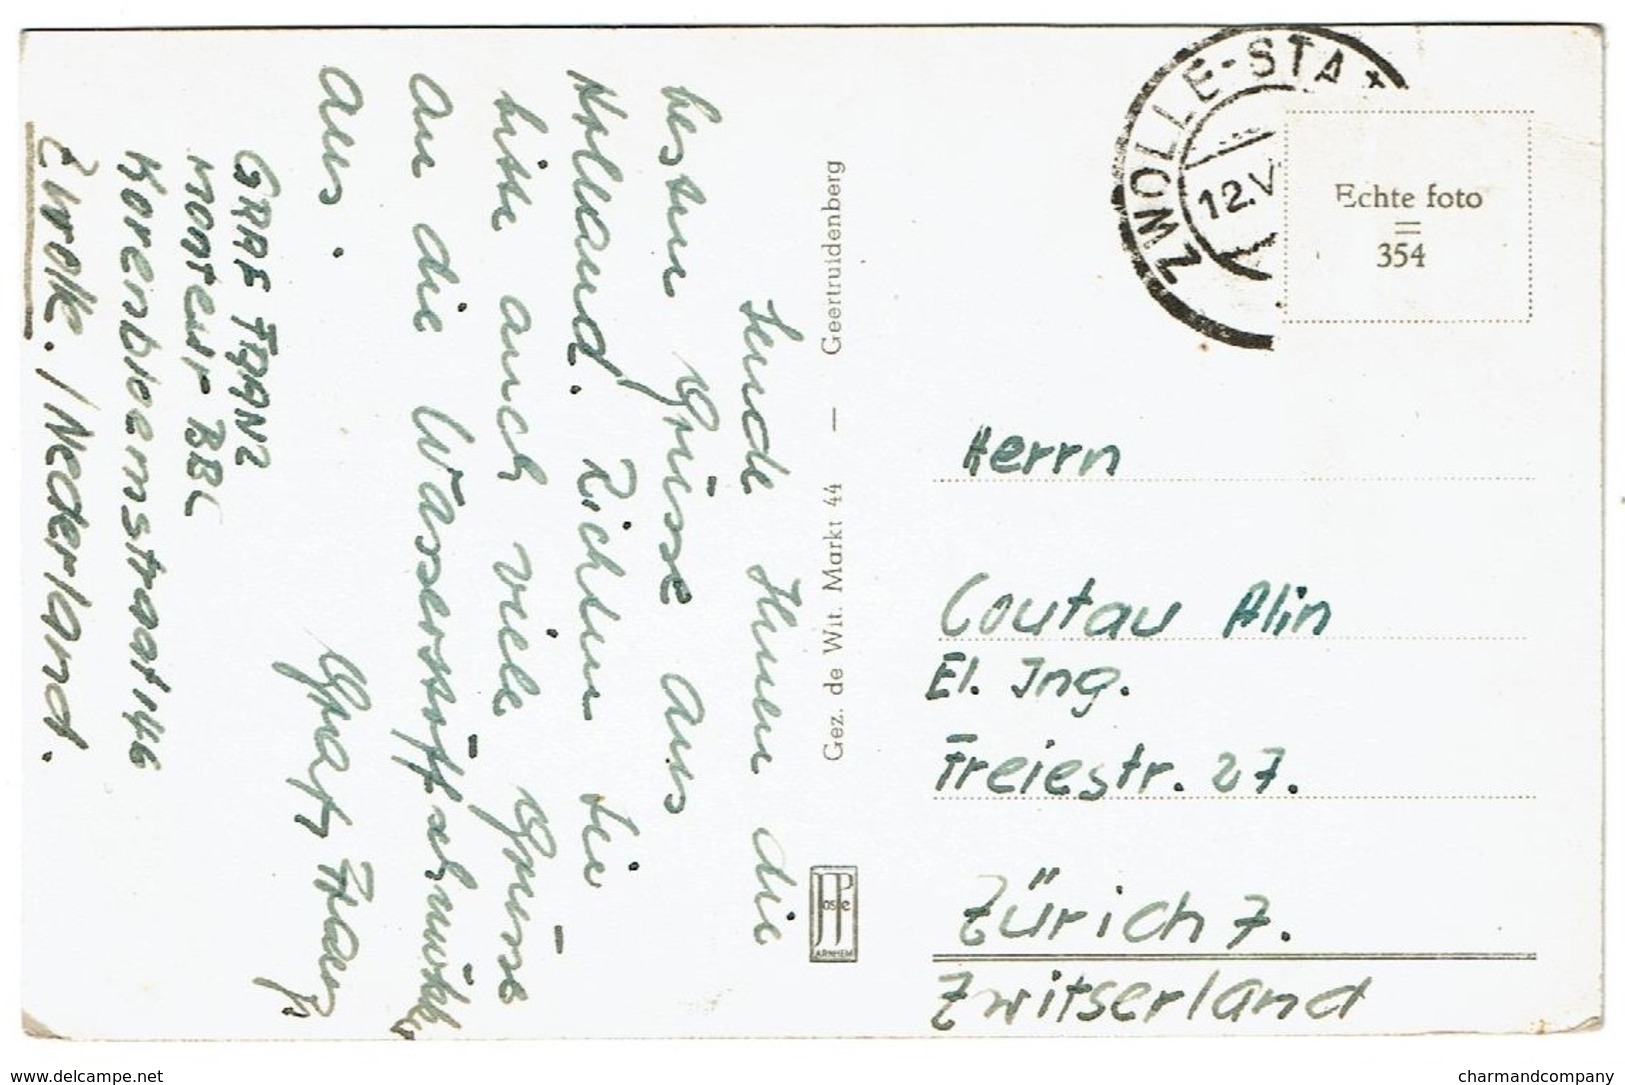 Sende Ihnen die
besten Grüsse aus
Holland. Richten Sie
bitte auch viele Grüsse
an die Wasserstöff
aus.
Franz
GRAF FRANZ
Monteur BBC
Korenbloemstraat 146
Zwolle. / Nederland.
Gez. de Wit. Markt 44 — Geertruidenberg
JosPe
ARNHEM
ZWOLLE-STA
12.V
Echte foto
=
354
Herrn
Coutau Alin
El. Ing.
Freiestr. 27.
Zürich 7.
Zwitserland
www.delcampe.net
charmandcompany